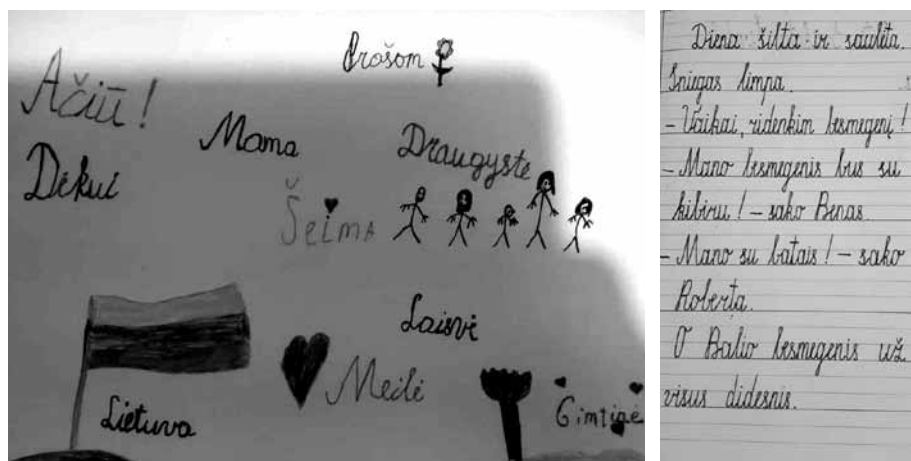 Prošom
Ačiū!
Mama
Draugystė
Dėkui
Šeima
Laisvė
Meilė
Lietuva
Gimtinė
Diena šilta ir saulėta.
Sniegas limpa.
- Vaikai, ridenkim besmegenį!
- Mano besmegenis bus su
kibiru! - sako Benas.
- Mano su batais! - sako
Roberta.
O Balio besmegenis už
visus didesnis.